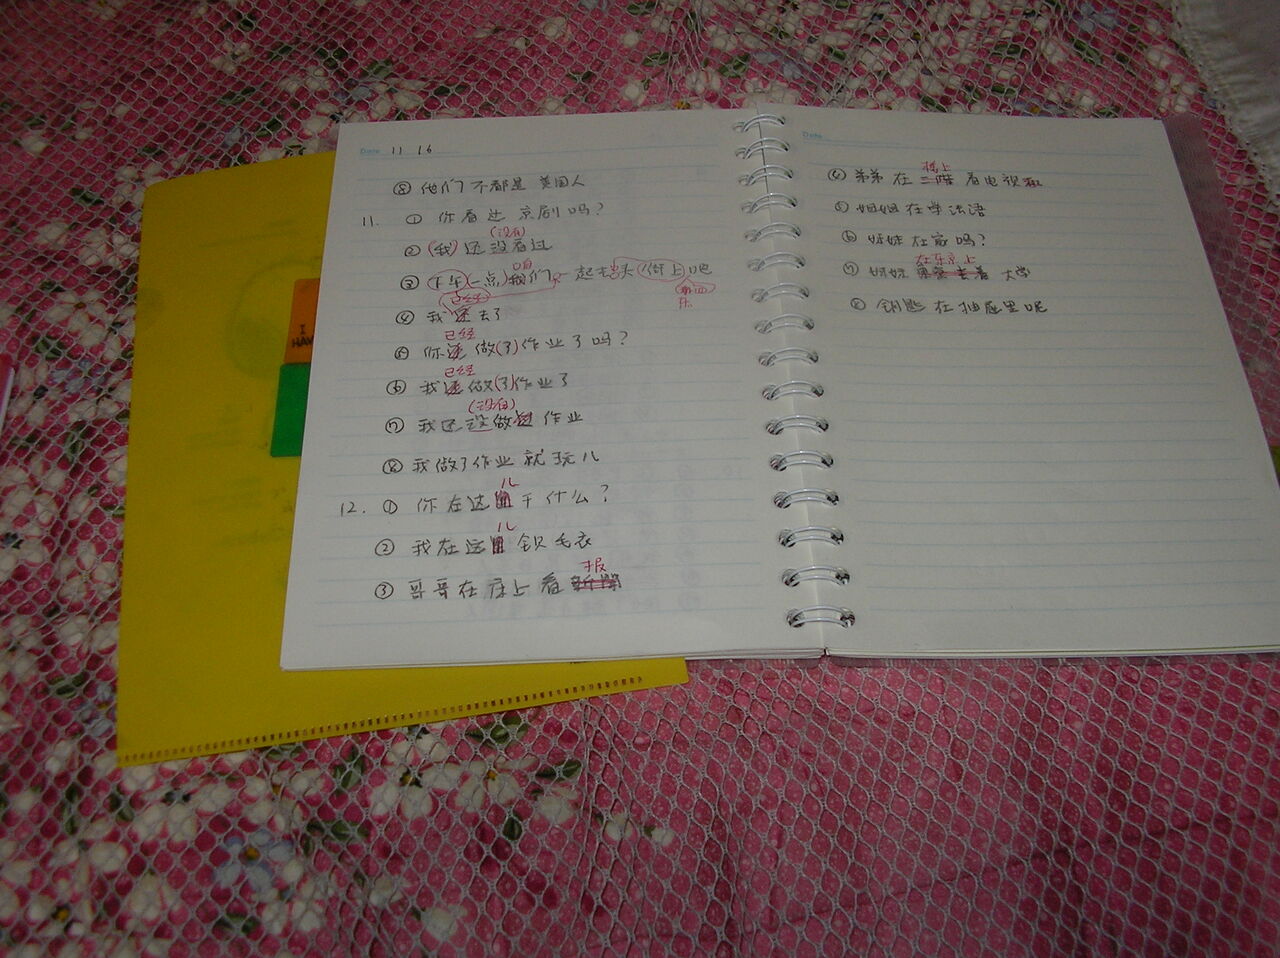 Date 11 16
⑧ 他们不都是美国人
11. ① 你看过京剧吗?
(没有)
② (我)还没看过
咱
③ 下午(一点)我们一起去 街上吧
已经
④ 我还去了
已经
⑤ 你还做(了)作业了吗?
已经
⑥ 我还做(了)作业了
(没有)
⑦ 我还没做过作业
⑧ 我做了作业就玩儿
儿
12. ① 你在这里干什么?
儿
② 我在这里织毛衣
报
③ 哥哥在床上看新聞
Date
楼上
④ 弟弟在二階看电视
⑤ 姐姐在学法语
⑥ 妹妹在家吗?
在东京上
⑦ 妹妹 大学
⑧ 钥匙在抽屉里呢
I
HAV